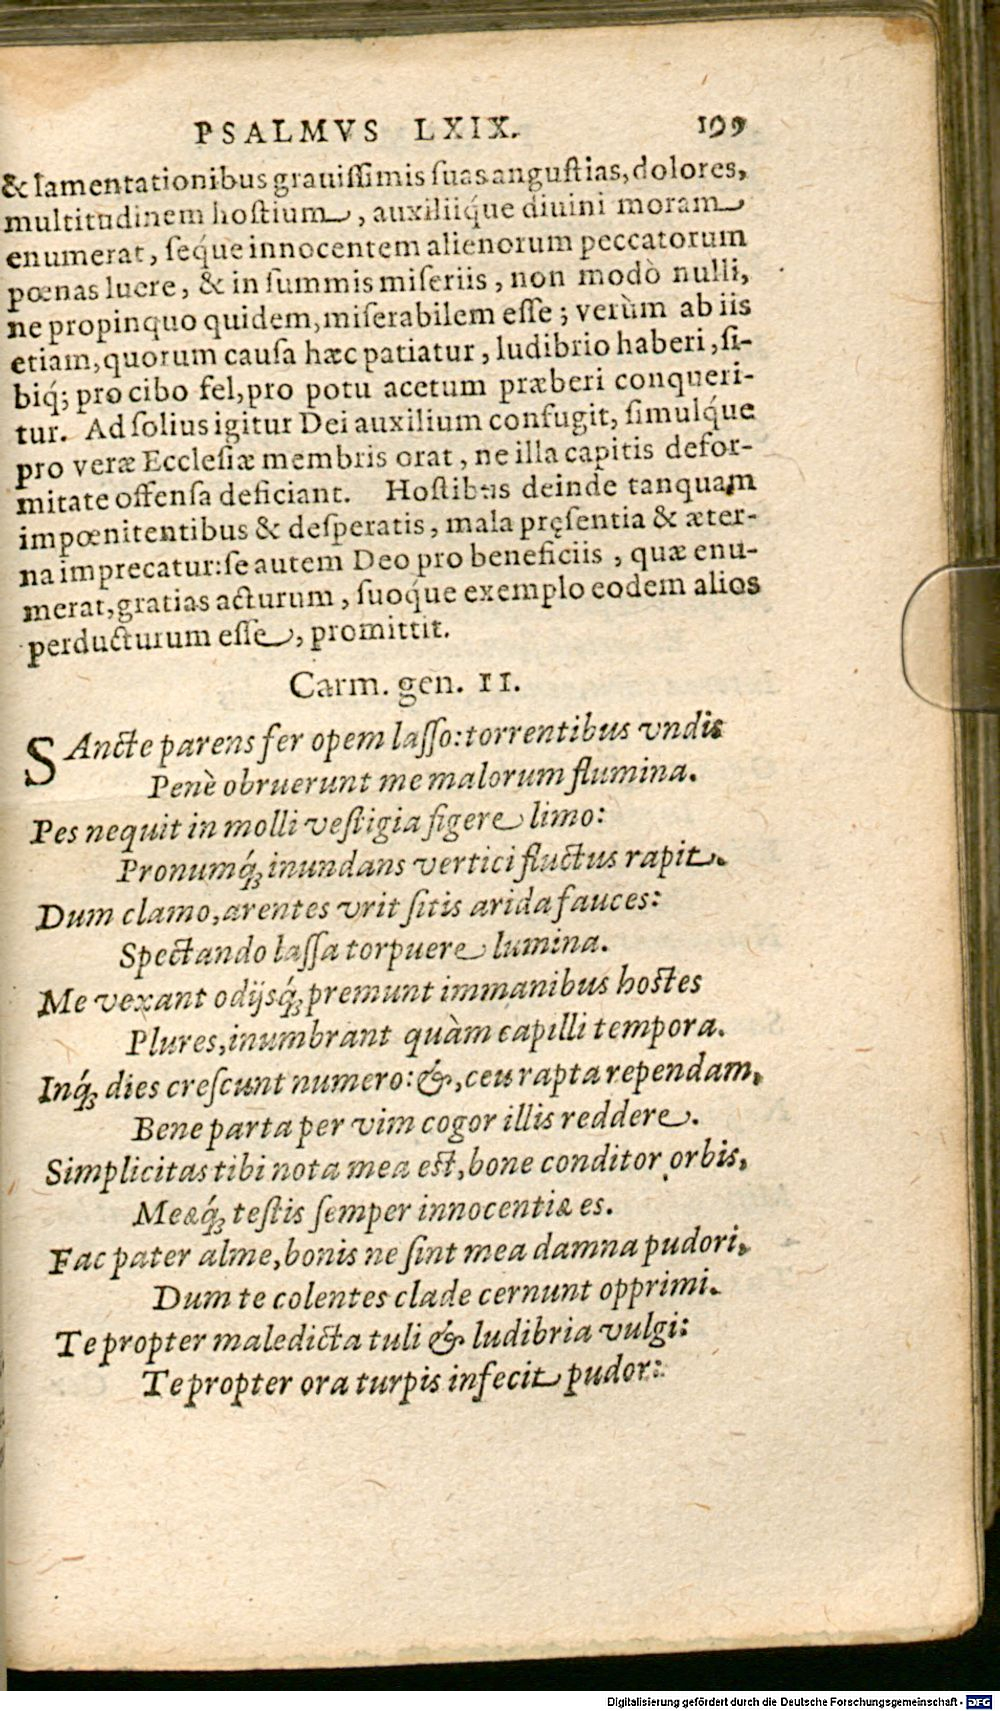 PSALMVS LXIX. 199
& lamentationibus grauissimis suas angustias, dolores,
multitudinem hostium, auxiliique diuini moram
enumerat, seque innocentem alienorum peccatorum
pœnas luere, & in summis miseriis, non modò nulli,
ne propinquo quidem, miserabilem esse; verùm ab iis
etiam, quorum causa hæc patiatur, ludibrio haberi, si-
biq́; pro cibo fel, pro potu acetum præberi conqueri-
tur. Ad solius igitur Dei auxilium confugit, simulq́ue
pro veræ Ecclesiæ membris orat, ne illa capitis defor-
mitate offensa deficiant. Hostibus deinde tanquam
impœnitentibus & desperatis, mala pręsentia & æter-
na imprecatur: se autem Deo pro beneficiis, quæ enu-
merat, gratias acturum, suoq́ue exemplo eodem alios
perducturum esse, promittit.
Carm. gen. II.
SAncte parens fer opem lasso: torrentibus vndis
Penè obruerunt me malorum flumina.
Pes nequit in molli vestigia figere limo:
Pronumq́; inundans vertici fluctus rapit.
Dum clamo, arentes vrit sitis arida fauces:
Spectando lassa torpuere lumina.
Me vexant odijsq́; premunt immanibus hostes
Plures, inumbrant quàm capilli tempora.
Inq́; dies crescunt numero: &, ceu rapta rependam,
Bene parta per vim cogor illis reddere.
Simplicitas tibi nota mea est, bone conditor orbis,
Meæq́; testis semper innocentiæ es.
Fac pater alme, bonis ne sint mea damna pudori,
Dum te colentes clade cernunt opprimi.
Te propter maledicta tuli & ludibria vulgi:
Te propter ora turpis infecit pudor:
Digitalisierung gefördert durch die Deutsche Forschungsgemeinschaft - DFG